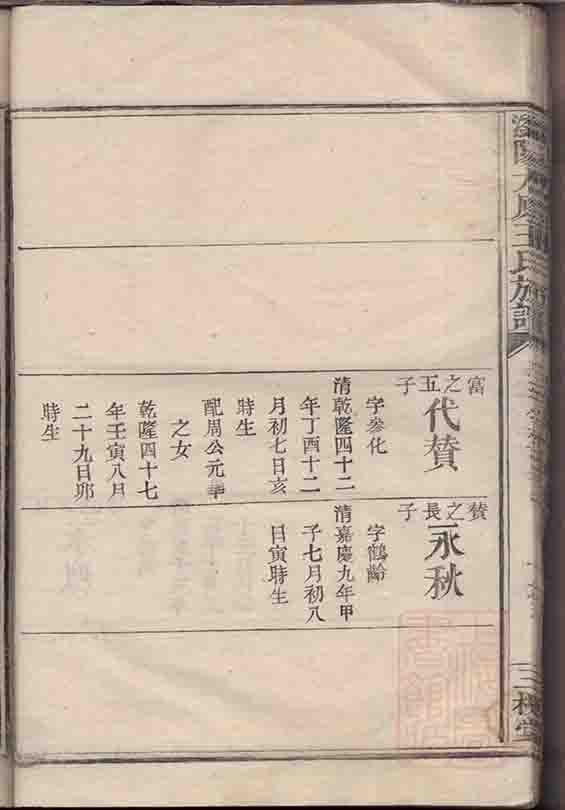 陽大 王氏族譜
三槐堂
富之五子
代贊
字參化
清乾隆四十二
年丁酉十二
月初七日亥
時生
配周公元華
之女
乾隆四十七
年壬寅八月
二十九日卯
時生
贊之長子
永秋
字鶴齡
清嘉慶九年甲
子七月初八
日寅時生